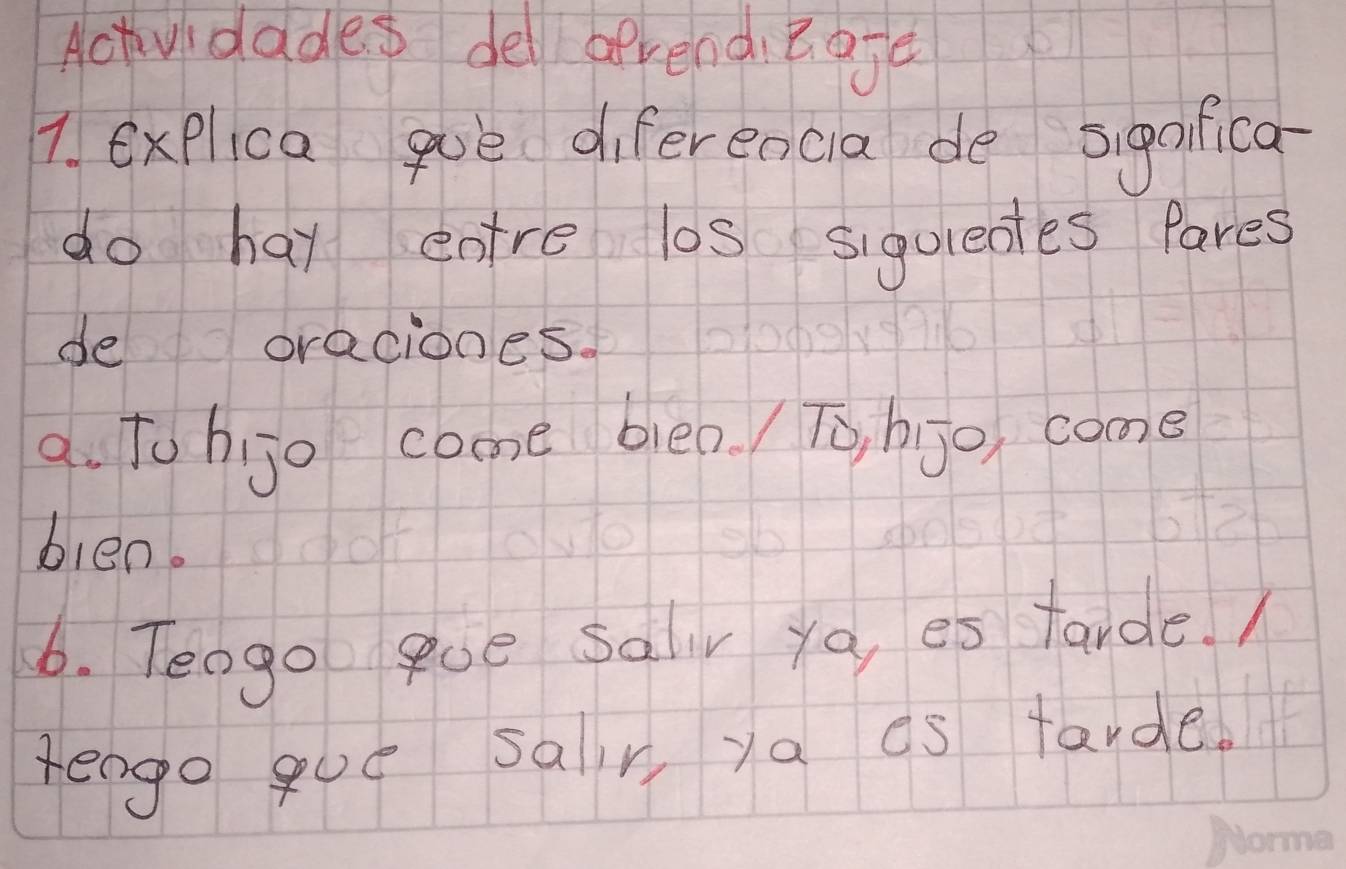 Actividades del aprendizaje
1. Explica qué diferencia de significa-
do hay entre los siguientes Pares
de oraciones.
a. Tu hijo come bien. / Tú, hijo, come
bien.
b. Tengo que salir ya, es tarde. /
tengo que salir, ya es tarde.
Norma